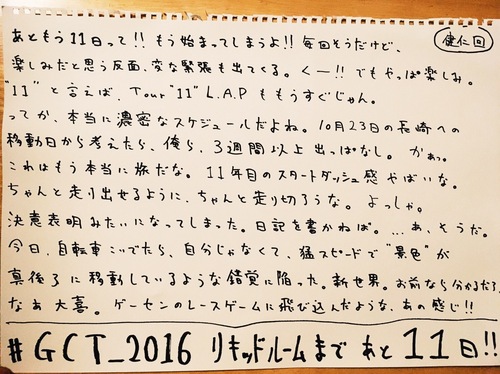 健仁回
あともう11日って!! もう始まってしまうよ!! 毎回そうだけど、
楽しみだと思う反面、変な緊張も出てくる。くー!! でもやっぱ楽しみ。
"11" と言えば、Tour "11" L.A.P ももうすぐじゃん。
ってか、本当に濃密なスケジュールだよね。10月23日の長崎への
移動日から考えたら、俺ら、3週間以上出っぱなし。かぁっ。
これはもう本当に旅だな。11年目のスタートダッシュ感やばいな。
ちゃんと走り出せるように、ちゃんと走り切ろうな。よっしゃ。
決意表明みたいになってしまった。日記を書かねば。... あ、そうだ。
今日、自転車こいでたら、自分じゃなくて、猛スピードで"景色"が
真後ろに移動しているような錯覚に陥った。新世男。お前なら分かるだろ
なあ大喜。ゲーセンのレースゲームに飛び込んだような、あの感じ!!
#GCT_2016 リキッドルームまで あと 11日!!